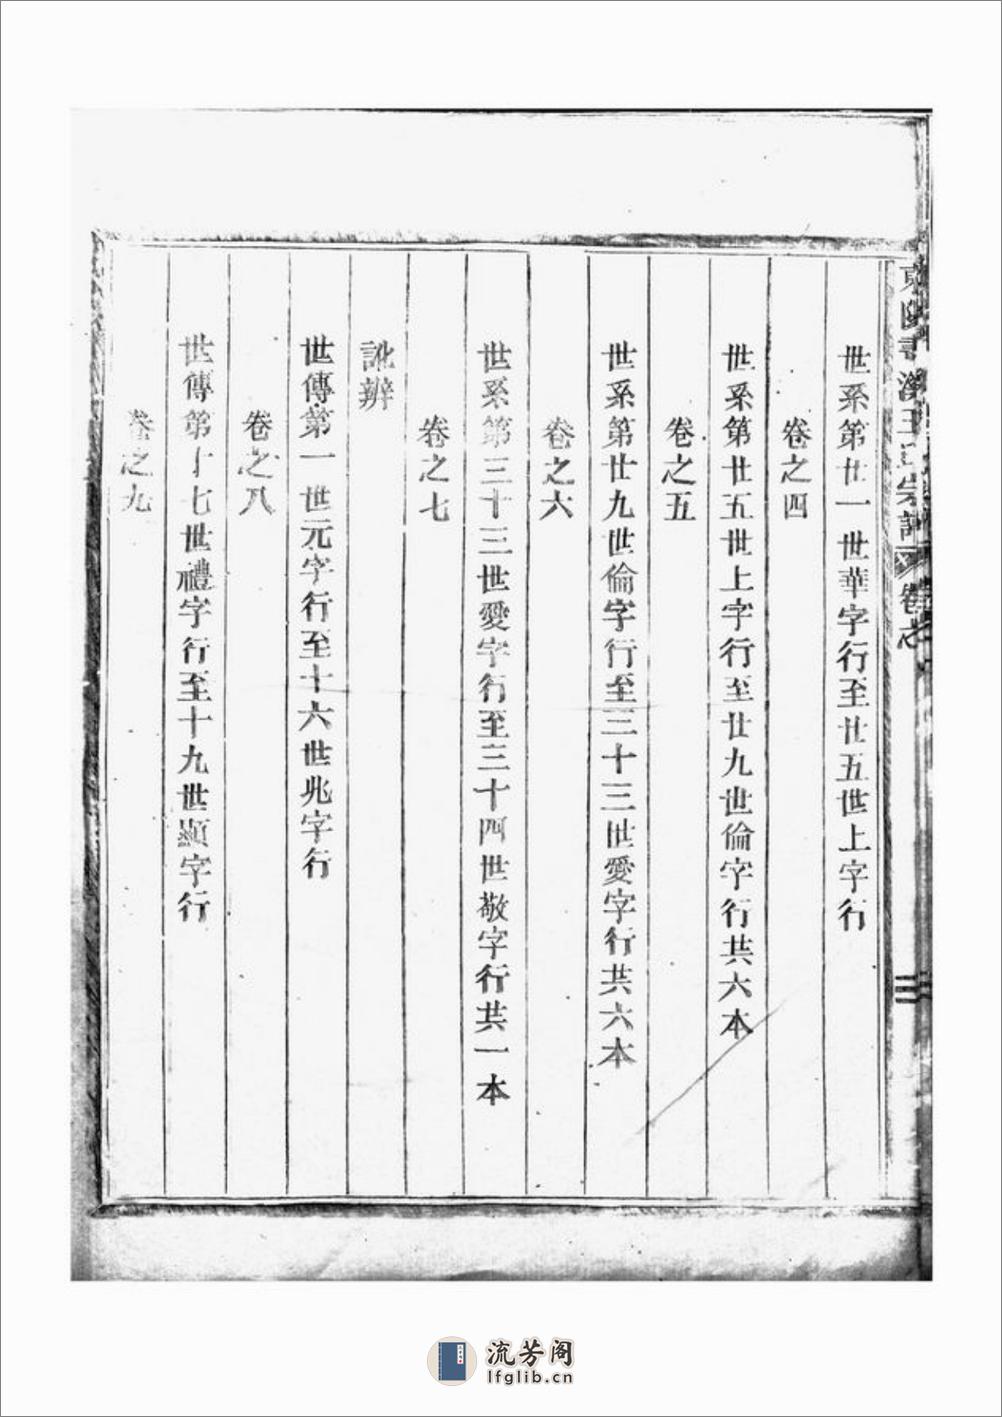 世系第廿一世華字行至廿五世上字行
卷之四
世系第廿五世上字行至廿九世倫字行共六本
卷之五
世系第廿九世倫字行至三十三世愛字行共六本
卷之六
世系第三十三世愛字行至三十四世敬字行共一本
卷之七
訛辨
世傳第一世元字行至十六世兆字行
卷之八
世傳第十七世禮字行至十九世顯字行
卷之九
流芳阁
lfglib.cn